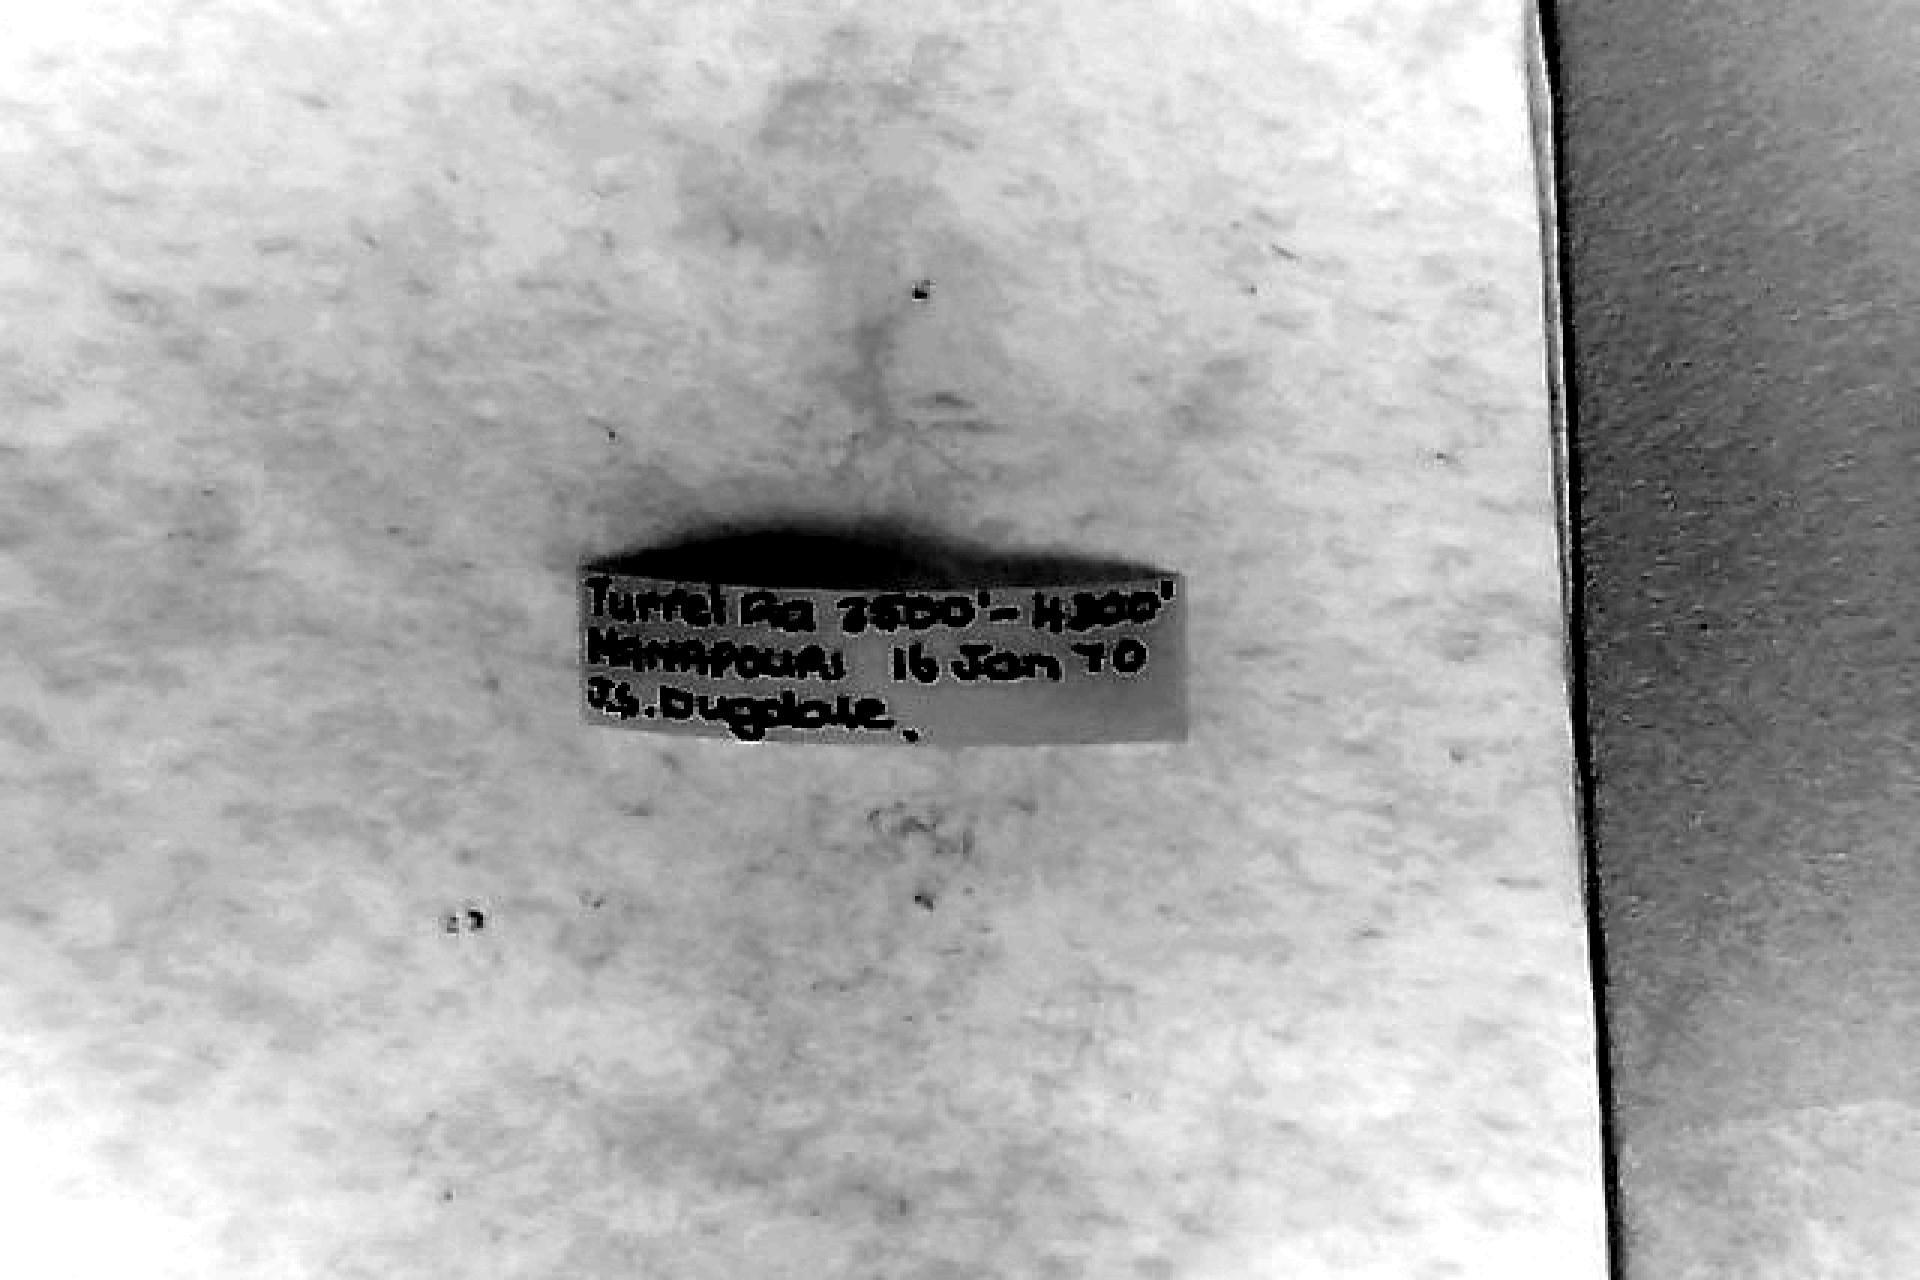 Turrel Ra 3500'-4300'
MANAPOURI 16 Jan 70
J.S.Dugdale.